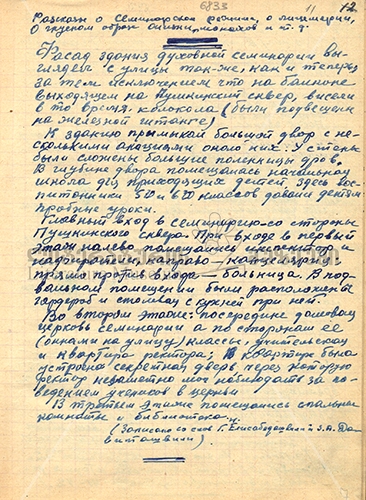 6833
11 12
Рассказы о Семинарском режиме, о лицемерии,
О грязном образе монахов и т.д.
Фасад здания духовной семинарии вы-
глядел с улицы так-же, как и теперь
за тем исключением что на балконе
выходящем на Пушкинский сквер, висели
в то время колокола (были подвешены
на железной штанге)
К зданию примыкал большой двор с не-
сколькими акациями около них. У стены
были сложены большие поленницы дров.
В глубине двора помещалась начальная
школа для приходящих детей, здесь вос-
питанники V и VI классов давали детям
пробные уроки.
Главный вход в семинарию со стороны
Пушкинского сквера. При входе в первый
этаж налево помещались инспектор и
надзиратели, направо — канцелярия,
прямо против входа — больница. В под-
вальном помещении были расположены
гардероб и столовая с кухней при ней.
Во втором этаже: посередине домовая
церковь семинарии а по сторонам ее
(окнами на улицу) классы, учительская
и квартира ректора; В квартире была
устроена секретная дверь, через которую
ректор незаметно мог наблюдать за по-
ведением учеников в церкви
В третьем этаже помещались спальные
комнаты и библиотека.
(Записано со слов Г. Елисабедашвили З.А. Да-
виташвили).